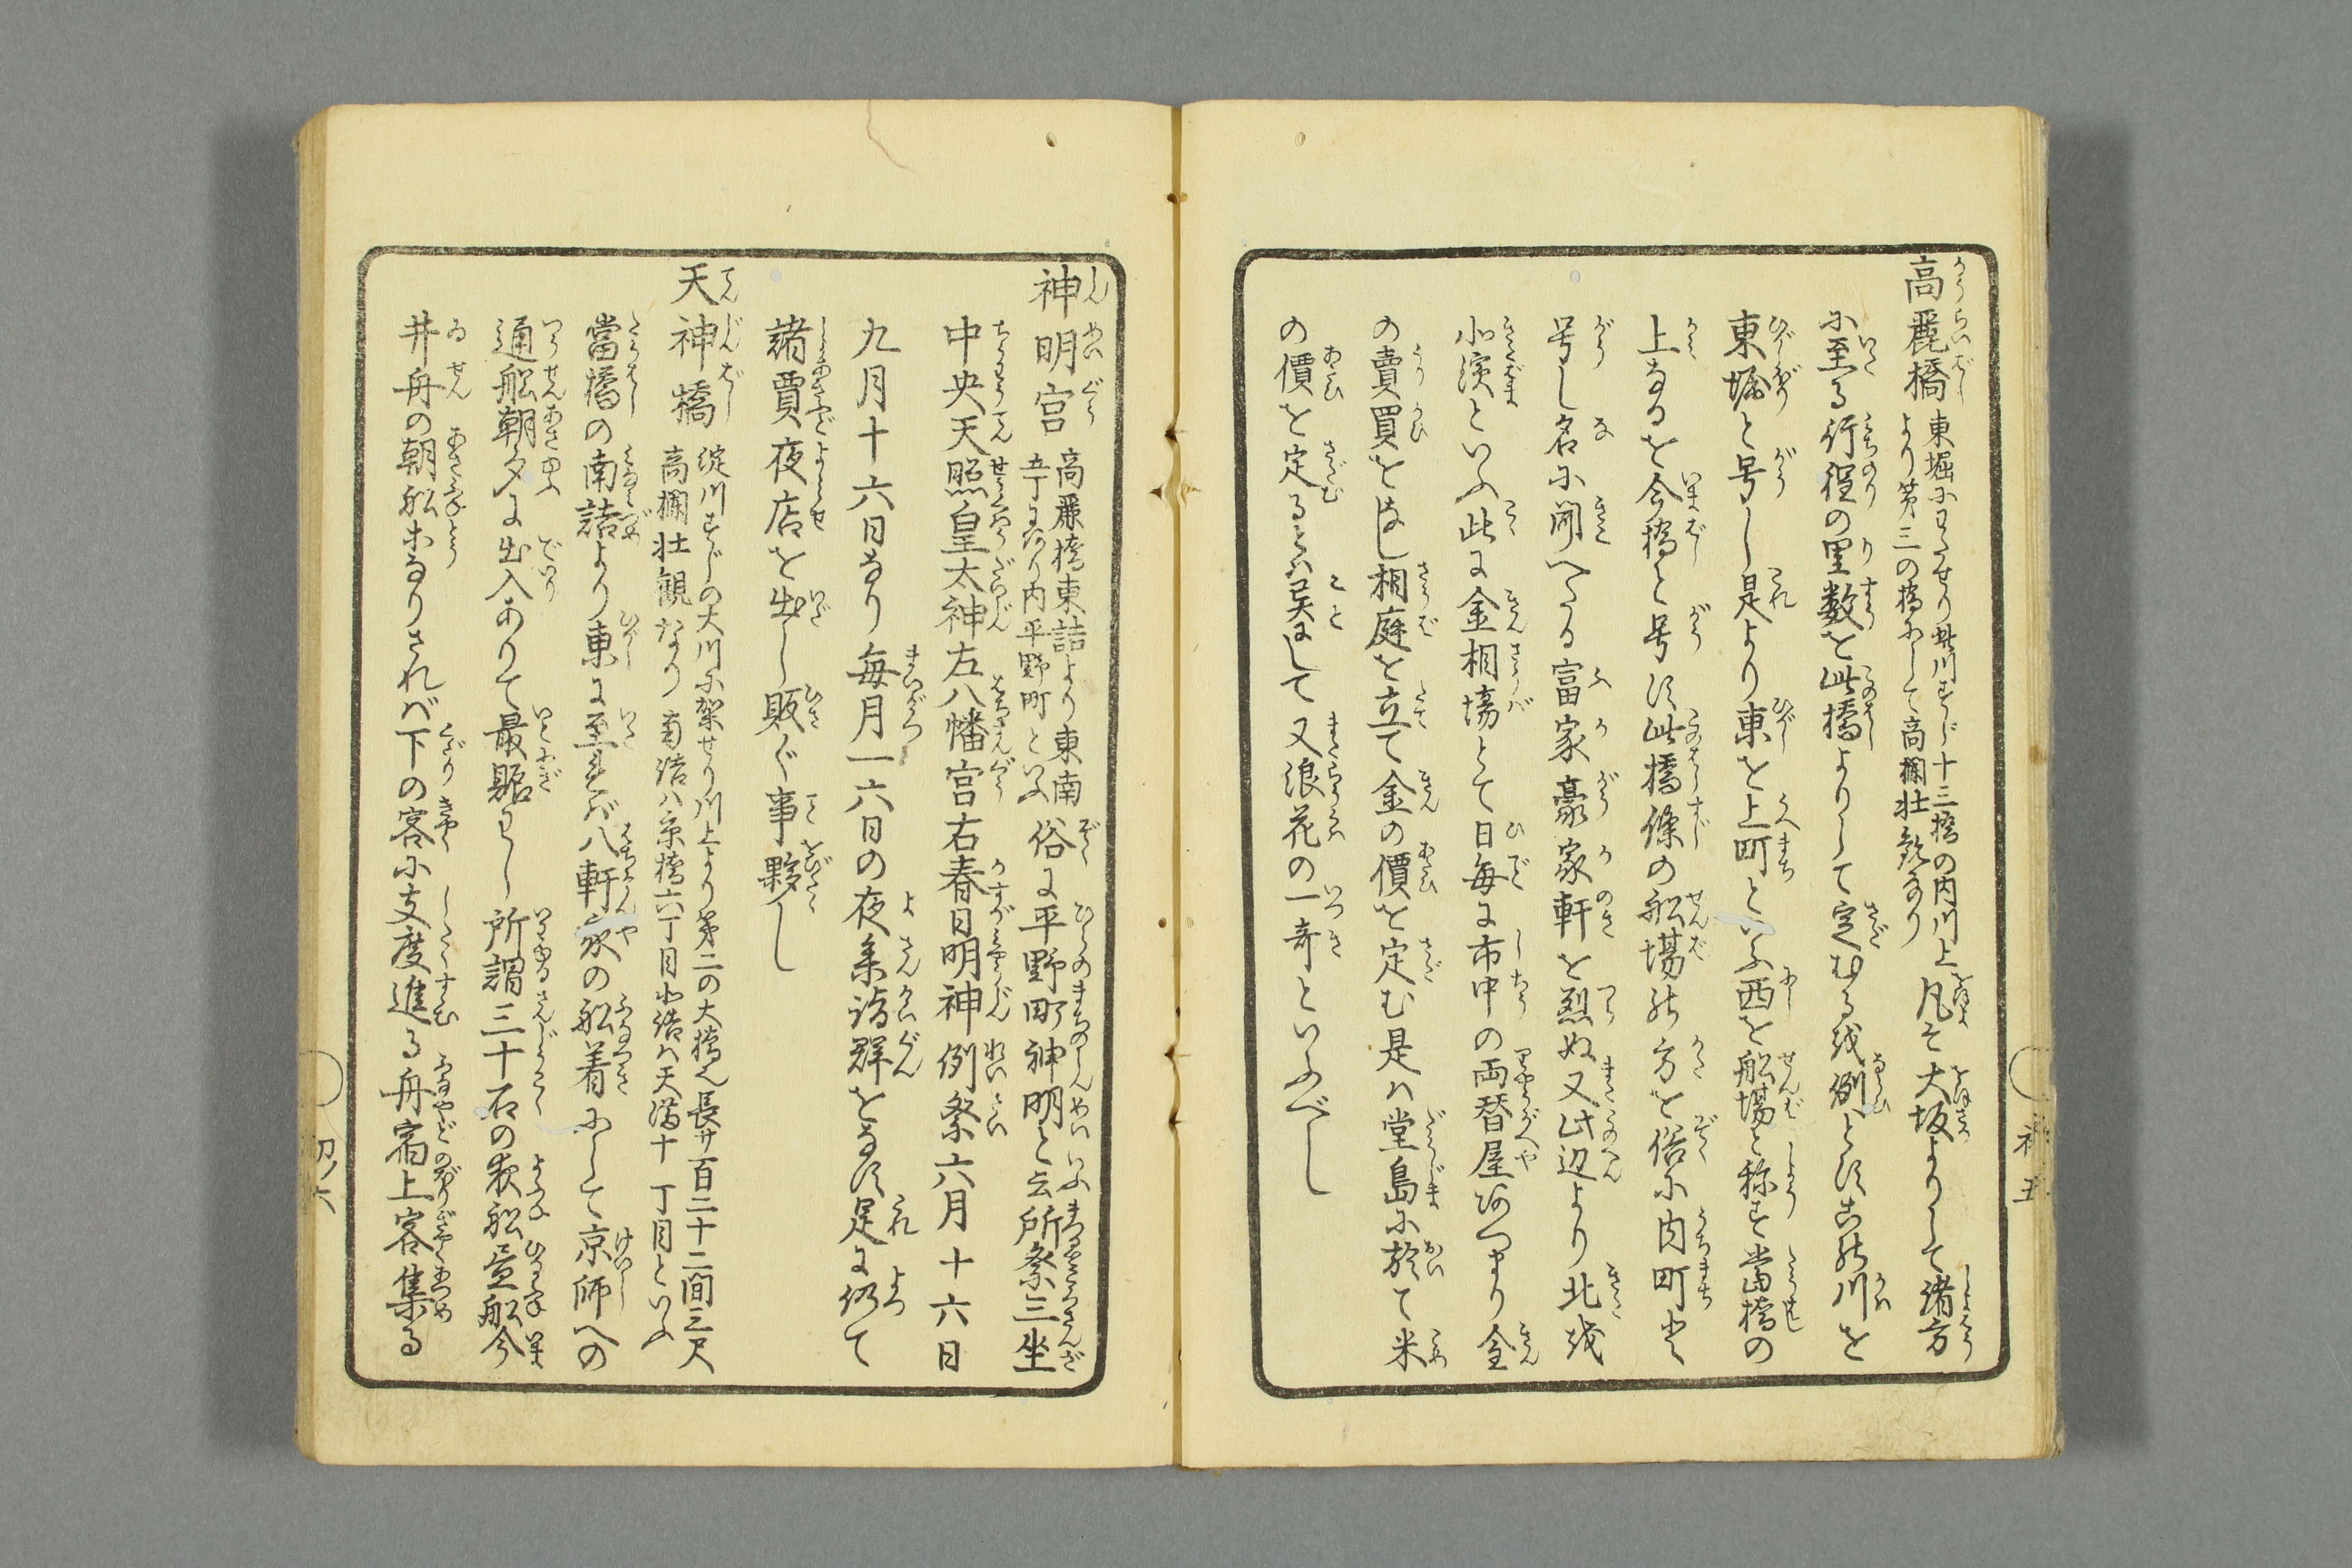 高麗橋 東堀にわたせり此川すじ十三橋の内川上
より第三の橋にして高欄壮観なり 凡そ大坂よりして諸方
に至る行程の里数を此橋よりして定むる越例とす
東堀と号し是より東を上町といふ西を船場と称す當橋の
上なるを今橋と号す此橋條の船場の方を俗に内町と
号し名に聞へたる富家豪家軒を烈ぬ又此辺より北を
北濱といふ此に金相場とて日毎に市中の両替屋あつまり金
の賣買をなし相庭を立て金の價を定む是ハ堂島に於て米
の價を定ると異にして又浪花の一奇といふべし
神明宮 高麗橋東詰より東南
五丁にあり内平野町といふ 俗に平野町神明と云所祭三坐
中央天照皇太神左八幡宮右春日明神例祭六月十六日
九月十六日なり毎月一六日の夜参詣群をなす是に仍て
諸賈夜店を出し販ぐ事夥し
天神橋 淀川すじの大川に架せり川上より第二の大橋也長サ百二十二間三尺
高欄壮観なり 南詰ハ京橋六丁目北詰ハ天満十丁目といふ
當橋の南詰より東に至れば八軒家の船着にして京師への
通船朝夕に出入ありて最賑わし所謂三十石の夜船昼船今
井舟の朝船等なりされば下の客に支度進る舟宿上客集る